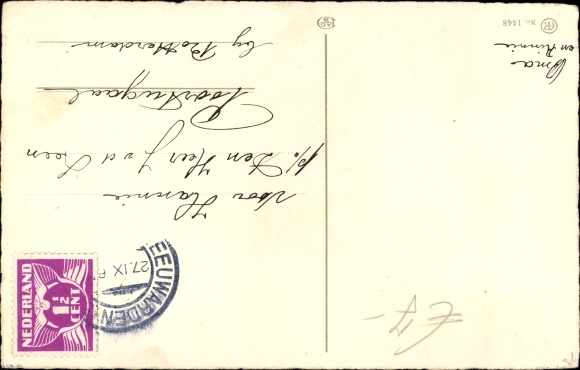 Oma
en Rinnie
voor Hannie
p/a Den Heer J v d Leen
Poortugaal
by Rotterdam
NEDERLAND
1½
CENT
LEEUWARDEN
27.IX
No. 1448